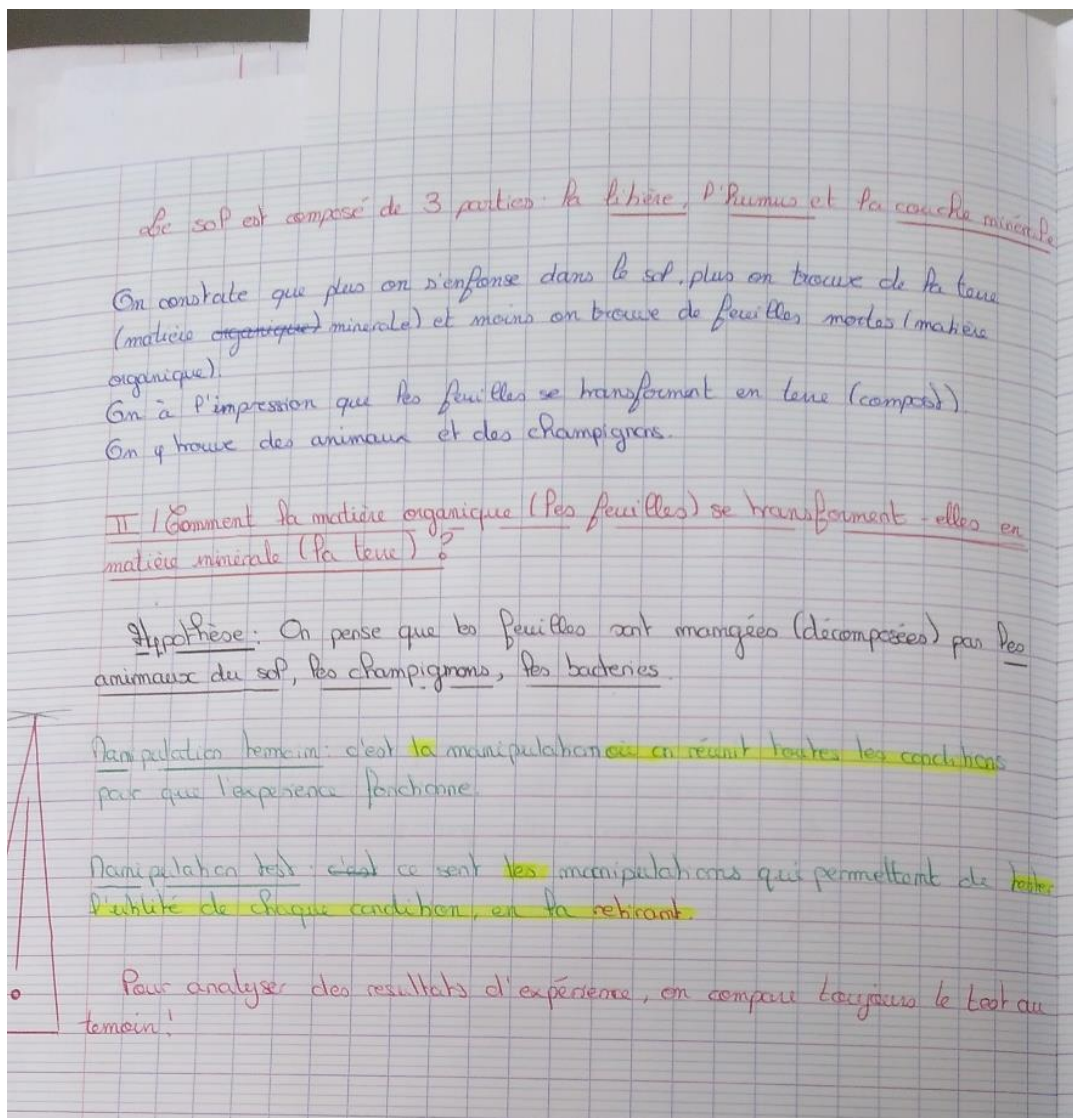 Le sol est composé de 3 parties: la litière, l'humus et la couche minérale
On constate que plus on s'enfonse dans le sol, plus on trouve de la terre
(matière organique) minerale) et moins on trouve de feuilles mortes (matière
organique).
On à l'impression que les feuilles se transforment en terre (compost)
On y trouve des animaux et des champignons.
II / Comment la matière organique (les feuilles) se transforment-elles en
matière minérale (la terre) ?
Hypothèse: On pense que les feuilles sont mangées (décomposées) par les
animaux du sol, les champignons, les bacteries.
Manipulation temoin: c'est la manipulation où on réunit toutes les conditions
pour que l'experience fonctionne.
Manipulation test: c'est ce sont les manipulations qui permettent de tester
l'utilité de chaque condition, en la retirant.
Pour analyser des resultats d'expérience, on compare toujours le test au
temoin!